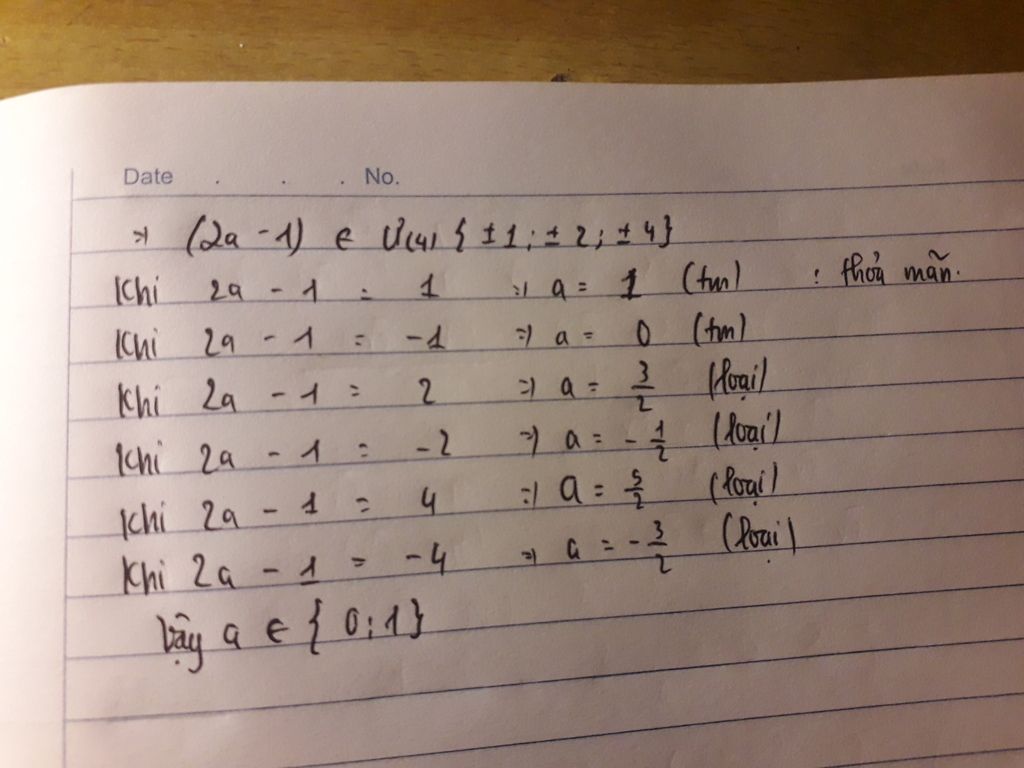 Date . . . No.
=> (2a - 1) ∈ Ư(4) {±1; ±2; ±4}
Khi 2a - 1 = 1 => a = 1 (tm) : thoả mãn.
Khi 2a - 1 = -1 => a = 0 (tm)
Khi 2a - 1 = 2 => a = 3/2 (loại)
Khi 2a - 1 = -2 => a = -1/2 (loại)
Khi 2a - 1 = 4 => a = 5/2 (loại)
Khi 2a - 1 = -4 => a = -3/2 (loại)
Vậy a ∈ {0; 1}